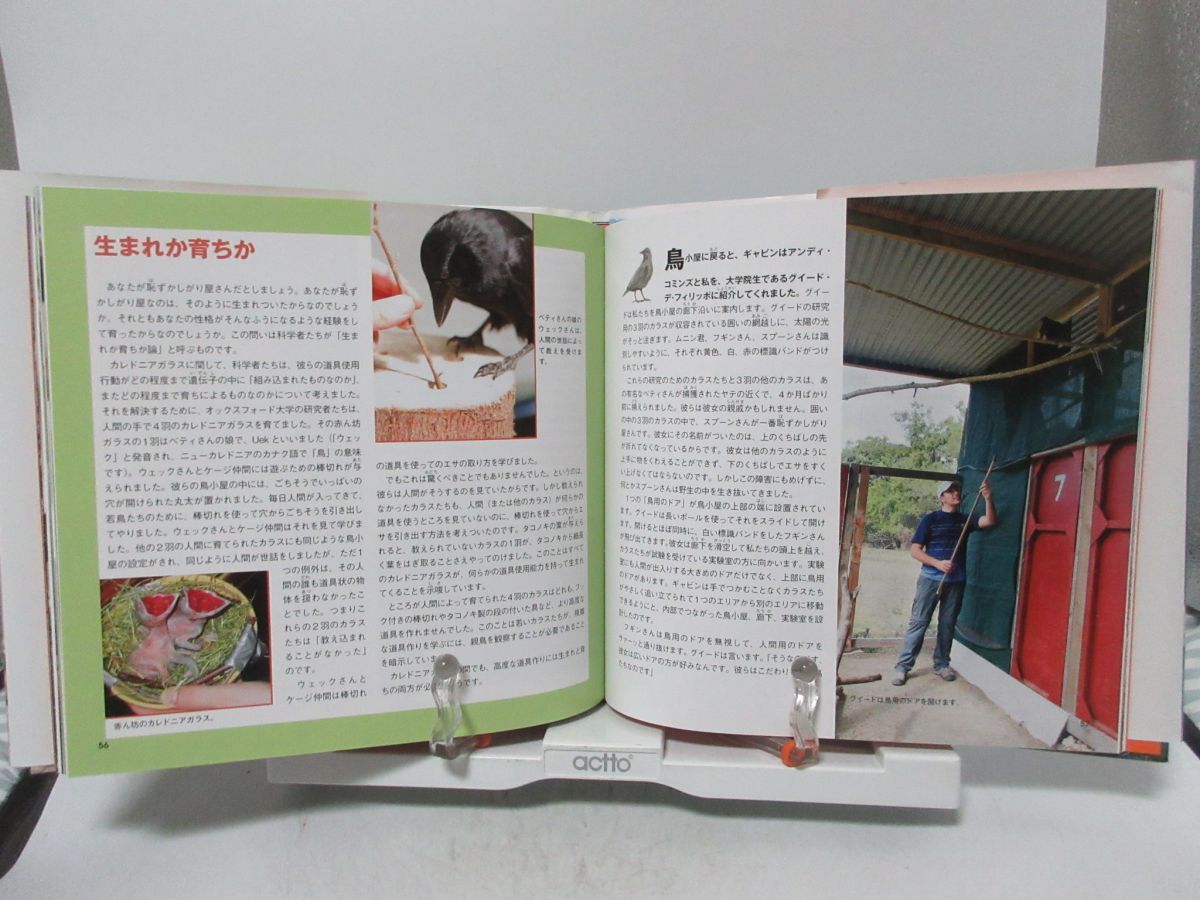 生まれか育ちか
あなたが恥ずかしがり屋さんだとしましょう。あなたが恥ず
かしがり屋なのは、そのように生まれついたからなのでしょう
か。それともあなたの性格がそんなふうになるような経験をし
て育ったからなのでしょうか。この問いは科学者たちが「生ま
れか育ちか論」と呼ぶものです。
カレドニアガラスに関して、科学者たちは、彼らの道具使用
行動がどの程度まで遺伝子の中に「組み込まれたものなのか、
またどの程度まで育ちによるものなのかについて考えました。
それを解決するために、オックスフォード大学の研究者たちは、
人間の手で4羽のカレドニアガラスを育てました。その赤ん坊
ガラスの1羽はベティさんの娘で、Uek といいました（「ウェッ
ク」と発音され、ニューカレドニアのカナク語で「鳥」の意味
です）。ウェックさんとケージ仲間には遊ぶための棒切れが与
えられました。彼らの鳥小屋の中には、ごちそうでいっぱいの
穴が開けられた丸太が置かれました。毎日人間が入ってきて、
若鳥たちのために、棒切れを使って穴からごちそうを引き出し
てやりました。ウェックさんとケージ仲間はそれを見て学びま
した。他の2羽の人間に育てられたカラスにも同じような鳥小
屋の設定がされ、同じように人間が世話をしましたが、ただ1
つの例外は、その人
間の誰も道具状の物
体を扱わなかったこ
とでした。つまりこ
れらの2羽のカラス
たちは「教え込まれ
ることがなかった」
のです。
ウェックさんと
ケージ仲間は棒切れ
赤ん坊のカレドニアガラス。
56
ベティさんの娘の
ウェックさんは、
人間の世話によっ
て教えを受けま
す。
の道具を使ってのエサの取り方を学びました。
でもこれは驚くべきことでもありませんでした。というのは、
彼らは人間がそうするのを見ていたからです。しかし教えられ
なかったカラスたちも、人間（または他のカラス）が何らかの
道具を使うところを見ていないのに、棒切れを使って穴からエ
サを引き出す方法を考えついたのです。タコノキの葉が与えら
れると、教えられていないカラスの1羽が、タコノキから細長
く葉をはぎ取ることさえやってのけました。このことはすべて
のカレドニアガラスが、何らかの道具使用能力を持って生まれ
てくることを示唆しています。
ところが人間によって育てられた4羽のカラスはどれも、フッ
ク付きの棒切れやタコノキ製の段の付いた具など、より高度な
道具を作れませんでした。このことは若いカラスたちが、複雑
な道具作りを学ぶには、親鳥を観察することが必要であること
を暗示しています
カレドニア 間でも、高度な道具作りには生まれと育
ちの両方が必 うです。
鳥小屋に戻ると、ギャビンはアンディ・
コミンズと私を、大学院生であるグイード・
デ・フィリッポに紹介してくれました。グイー
ドは私たちを鳥小屋の廊下沿いに案内します。グイードの研究
用の3羽のカラスが収容されている囲いの網越しに、太陽の光
がそっと注ぎます。ムニン君、フギンさん、スプーンさんは識
別しやすいように、それぞれ黄色、白、赤の標識バンドがつけ
られています。
これらの研究のためのカラスたちと3羽の他のカラスは、あ
の有名なベティさんが捕獲されたヤテの近くで、4か月ばかり
前に捕えられました。彼らは彼女の親戚かもしれません。囲い
の中の3羽のカラスの中で、スプーンさんが一番恥ずかしがり
屋さんです。彼女にその名前がついたのは、上のくちばしの先
が折れてなくなっているからです。彼女は他のカラスのように
上手に物をくわえることができず、下のくちばしでエサをすく
い上げなくてはならないのです。しかしこの障害にもめげずに、
何とかスプーンさんは野生の中を生き抜いてきました。
1つの「鳥用のドア」が鳥小屋の上部の端に設置されていま
す。グイードは長いポールを使ってそれをスライドして開け
ます。開けるとほぼ同時に、白い標識バンドをしたフギンさん
が飛び出てきます。彼女は廊下を滑空して私たちの頭上を越え、
カラスたちが試験を受けている実験室の方に向かいます。実験
室にも人間が出入りする大きめのドアだけでなく、上部に鳥用
のドアがあります。ギャビンは手でつかむことなくカラスたち
がやさしく追い立てられて1つのエリアから別のエリアに移動
できるようにと、内部でつながった鳥小屋、廊下、実験室を設
計したのです。
フギンさんは鳥用のドアを無視して、人間用のドアを
ヴァーッと通り抜けます。グイードは言います。「そうな
彼女は広いドアの方が好みなんです。彼らはこだわり
たちなのです」
グイードは鳥用のドアを開けます。
7
actto